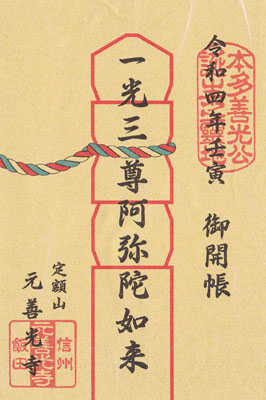 本多善光公
誕生霊地
令和四年壬寅 御開帳
一光三尊阿弥陀如来
定額山
元善光寺
信州
元善光寺
飯田